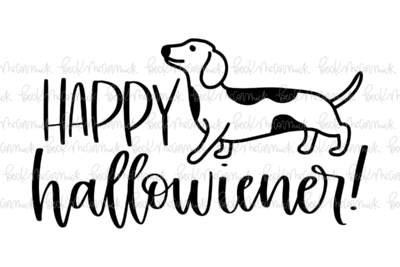 HAPPY
hallowiener!